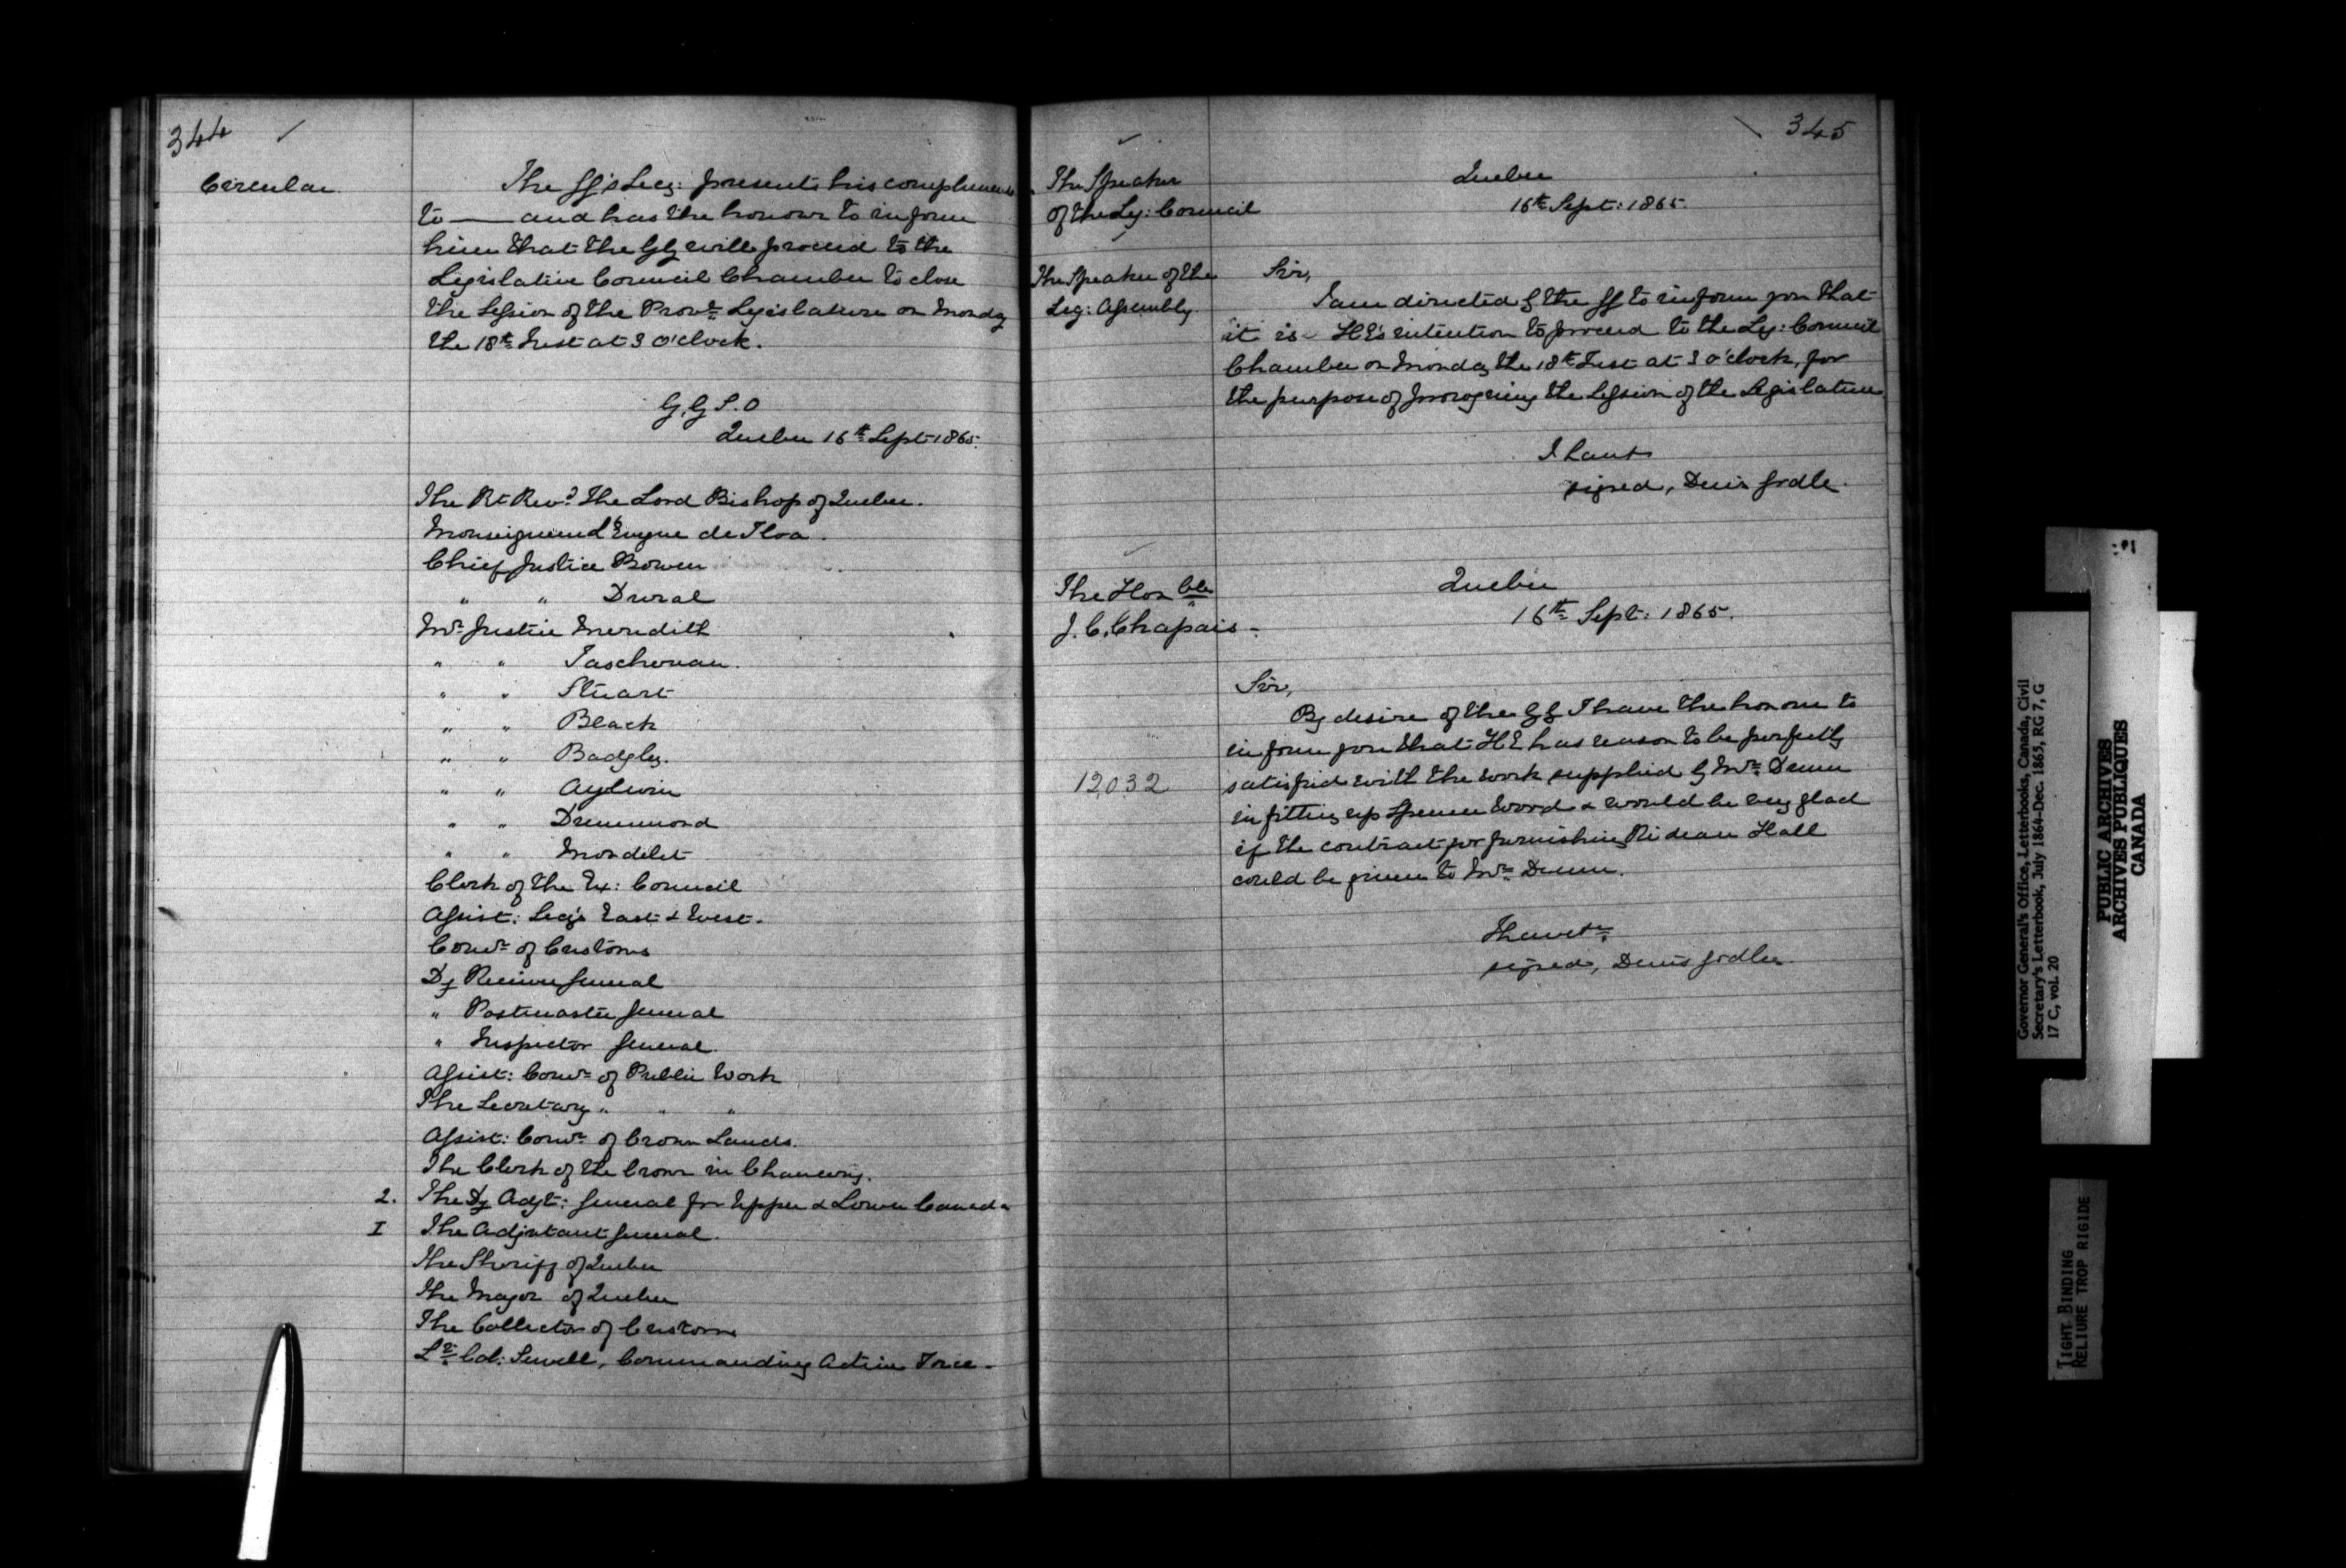 344
Circular
The GG's Secy: presents his compliments
to —— and has the honour to inform
him that the GG will proceed to the
Legislative Council Chamber to close
the Session of the Provl Legislature on Monday
the 18th Inst at 3 o'clock.
G.G.S.O
Quebec 16th Sept 1865.
The Rt Revd The Lord Bishop of Quebec.
Monseigneur l'Evêque de Tloa.
Chief Justice Bowen
" " Duval
Mr Justice Meredith
" " Taschereau.
" " Stuart
" " Black
" " Badgley.
" " Aylwin
" " Drummond
" " Mondelet
Clerk of the Ex: Council
Assist: Secy's East & West.
Comr of Customs
Dy Receiver General
" Postmaster General
" Inspector General.
Assist: Comr of Public Work
The Secretary " " "
Assist: Comr of Crown Lands.
The Clerk of the Crown in Chancery.
2. The Dy Adjt: General for Upper & Lower Canada
I The Adjutant General.
The Sheriff of Quebec
The Mayor of Quebec
The Collector of Customs
Lt Col: Sewell, Commanding Active Force -
345
The Speaker
of the Leg: Council
The Speaker of the
Leg: Assembly
Quebec
16th Sept: 1865.
Sir,
I am directed by the GG to inform you that
it is HE's intention to proceed to the Leg: Council
Chamber on Monday the 18th Inst at 3 o'clock, for
the purpose of proroguing the Session of the Legislature.
I have &c
signed, Denis Godley.
The Honble
J. C. Chapais -
Quebec
16th Sept: 1865.
Sir,
By desire of the GG I have the honour to
inform you that HE has reason to be perfectly
12,032
satisfied with the work supplied by Mr Drum
in fitting up Spencer Wood & would be very glad
if the contract for furnishing Rideau Hall
could be given to Mr Drum.
I have &c.
signed, Denis Godley.
Governor General's Office, Letterbooks, Canada, Civil
Secretary's Letterbook, July 1864-Dec. 1865, RG 7, G
17 C, vol. 20
PUBLIC ARCHIVES
ARCHIVES PUBLIQUES
CANADA
TIGHT BINDING
RELIURE TROP RIGIDE